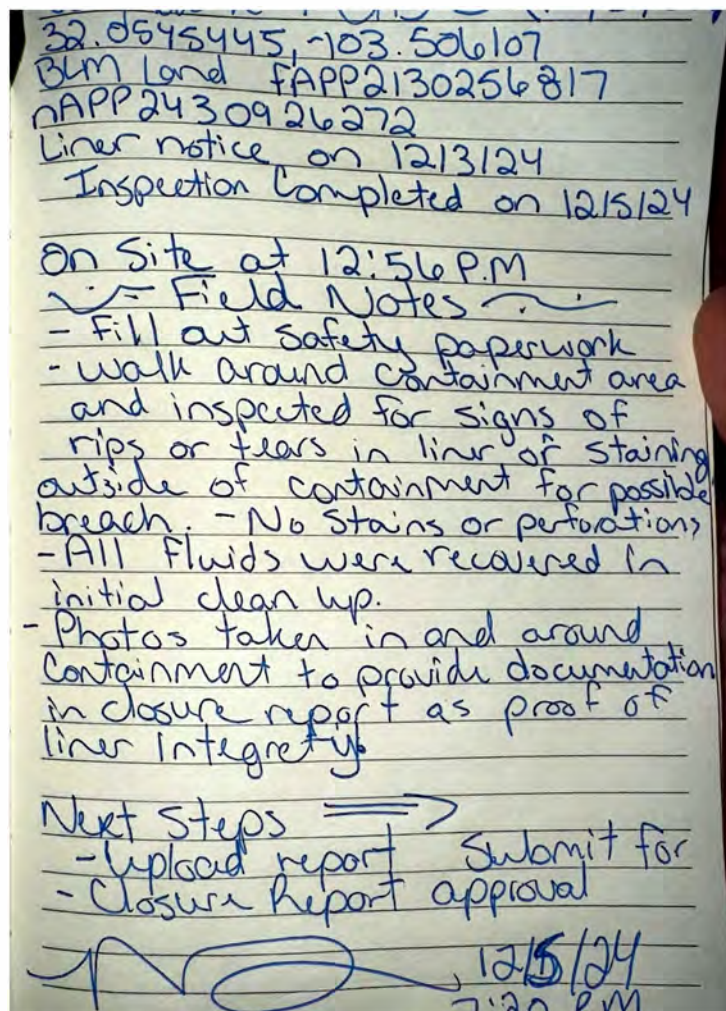 32.0545445, -103.506107
BLM Land fAPP2130256817
nAPP2430926272
Liner notice on 12/3/24
Inspection Completed on 12/5/24
On Site at 12:56 P.M
Field Notes
- Fill out safety paperwork
- walk around containment area
and inspected for signs of
rips or tears in liner or staining
outside of containment for possible
breach. - No Stains or perforations
- All Fluids were recovered in
initial clean up.
- Photos taken in and around
Containment to provide documentation
in closure report as proof of
liner integrety.
Next Steps
- Upload report Submit for
- Closure Report approval
12/5/24